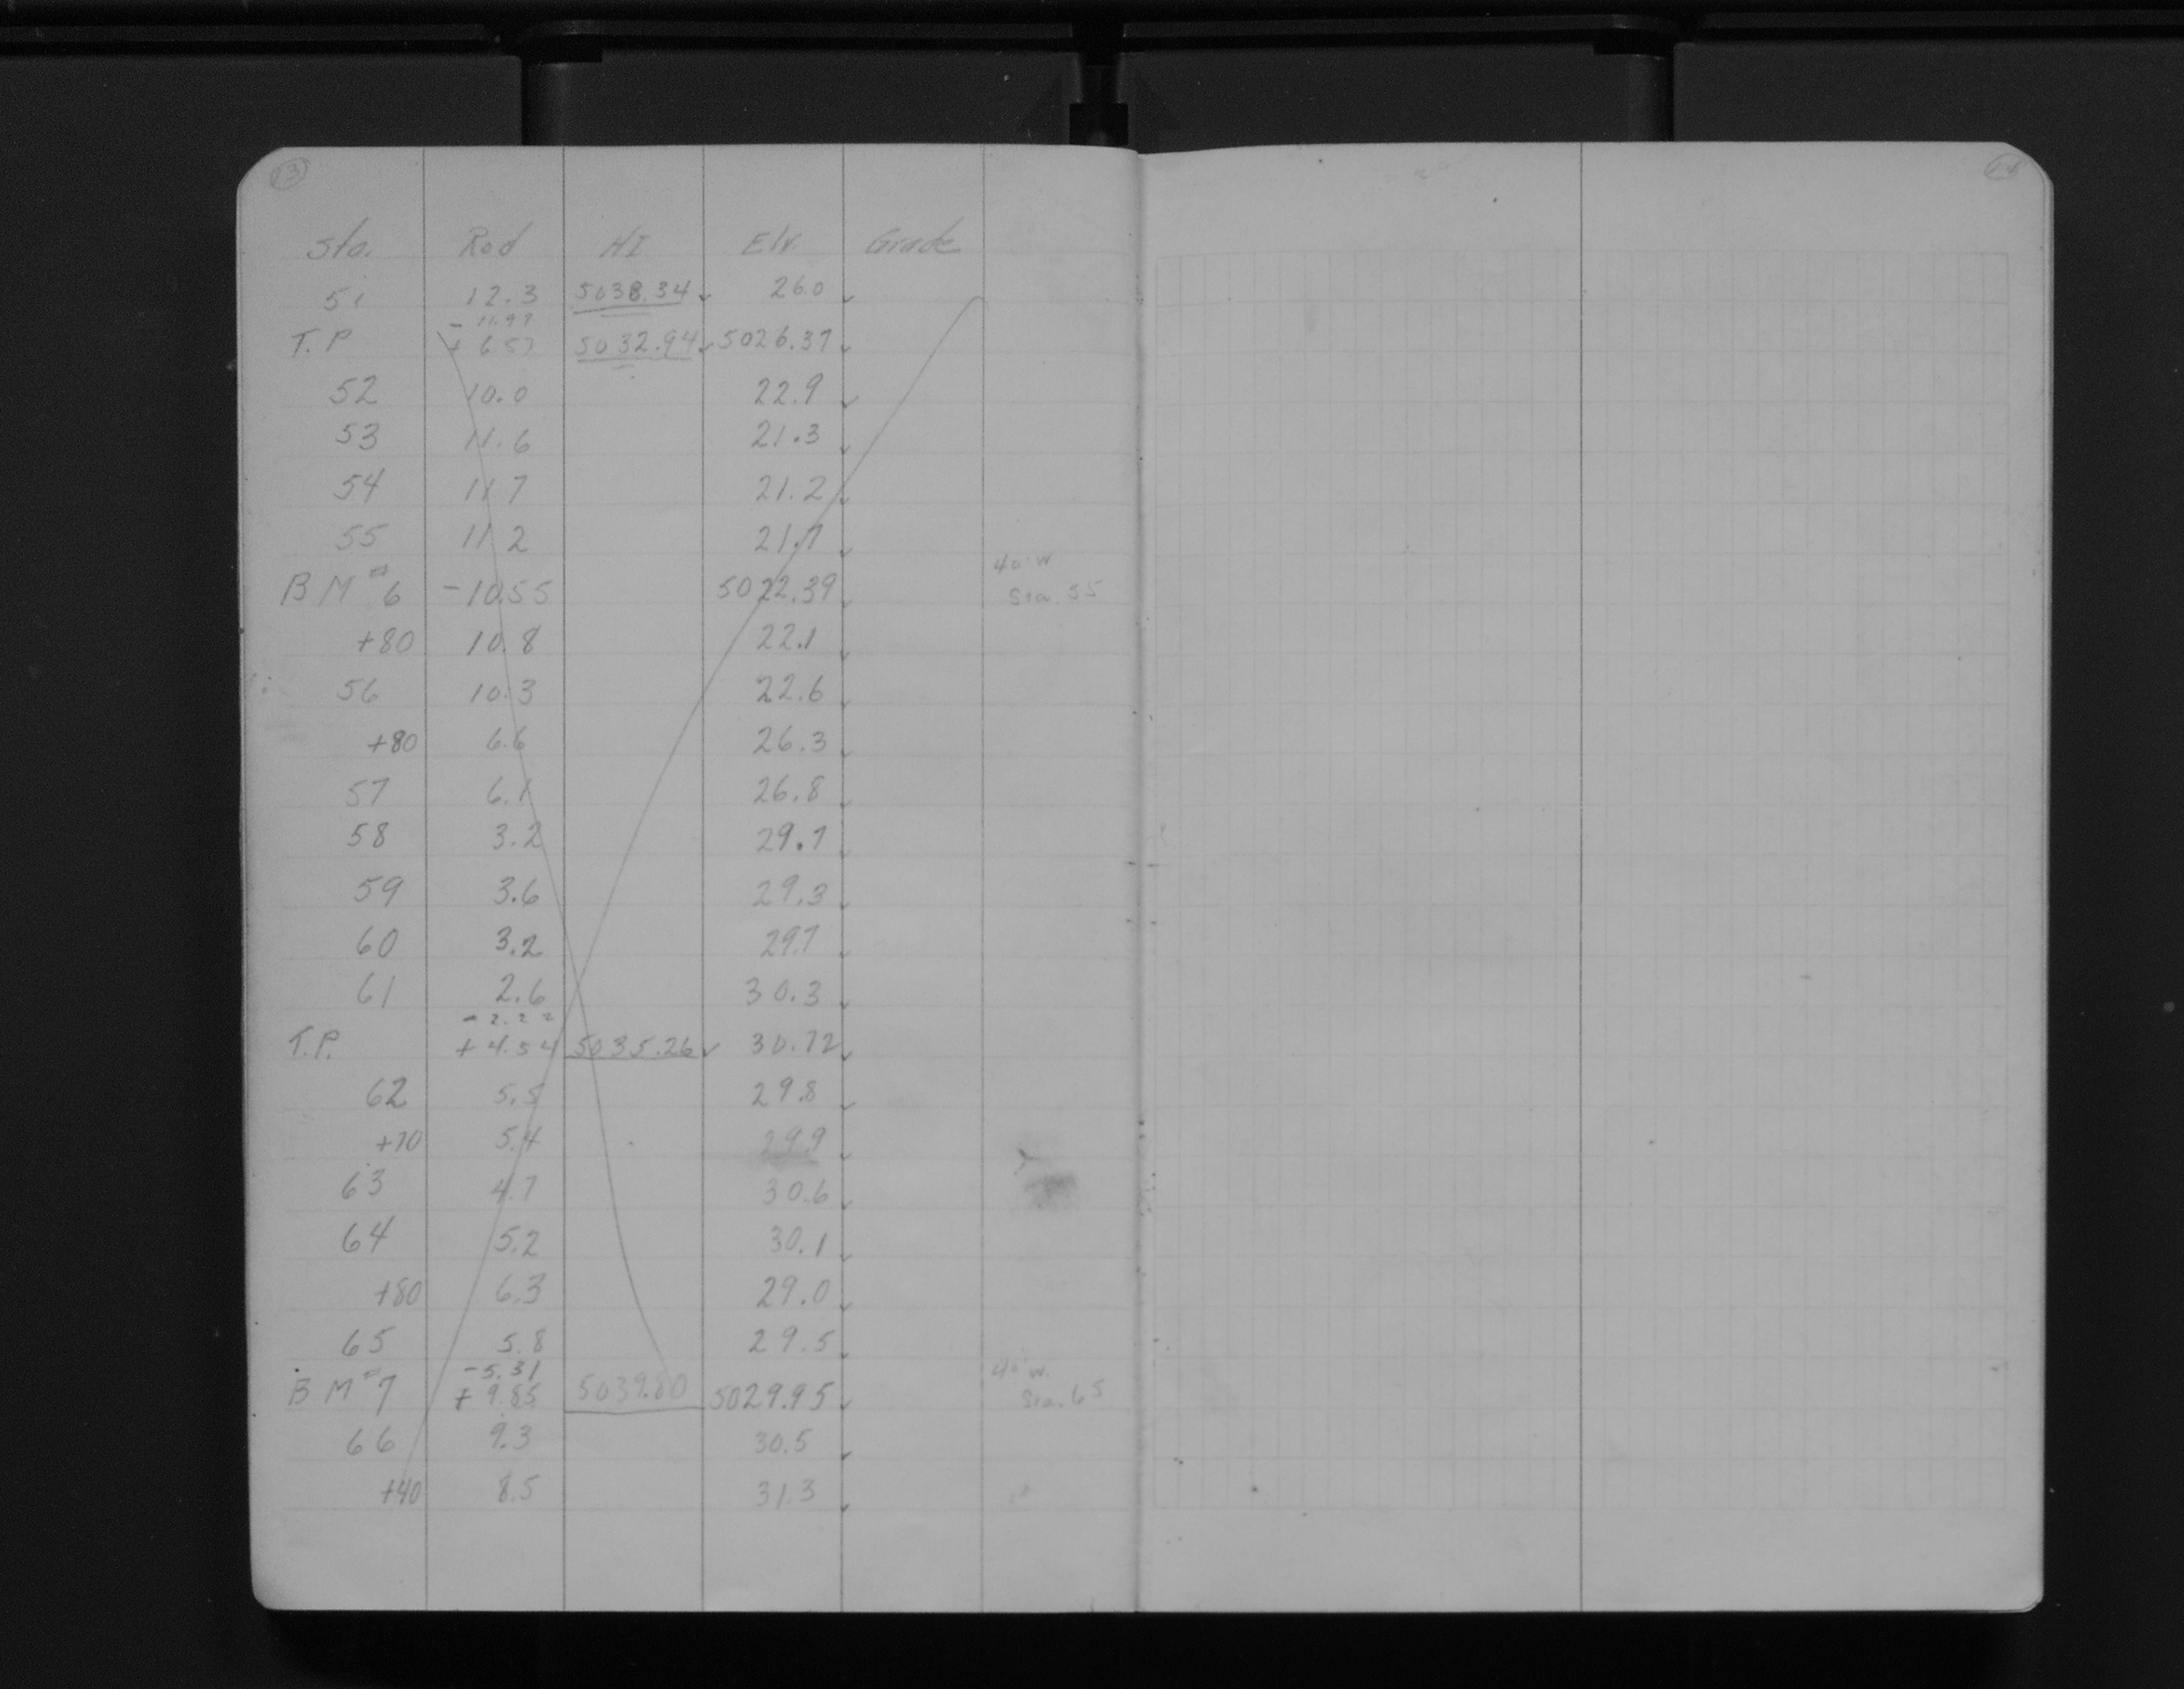 13
Sta. Rod HI Elv. Grade
51 12.3 5038.34 ✓ 26.0 ✓
- 11.97
T.P + 6.57 5032.94 ✓ 5026.37 ✓
52 10.0 22.9 ✓
53 11.6 21.3 ✓
54 11 7 21.2 ✓
55 11 2 21.7 ✓
40' W
B M #6 -10.55 5022.39 ✓ Sta. 55
+80 10.8 22.1 ✓
56 10.3 22.6 ✓
+80 6.6 26.3 ✓
57 6.1 26.8 ✓
58 3.2 29.7 ✓
59 3.6 29.3 ✓
60 3.2 29.7 ✓
61 2.6 30.3 ✓
- 2.22
T.P. + 4.54 5035.26 ✓ 30.72 ✓
62 5.5 29.8 ✓
+70 5.4 29.9 ✓
63 4.7 30.6 ✓
64 5.2 30.1 ✓
+80 6.3 29.0 ✓
65 5.8 29.5 ✓
-5.31 40' W.
B M #7 + 9.85 5039.80 5029.95 ✓ Sta. 65
66 9.3 30.5 ✓
+40 8.5 31.3 ✓